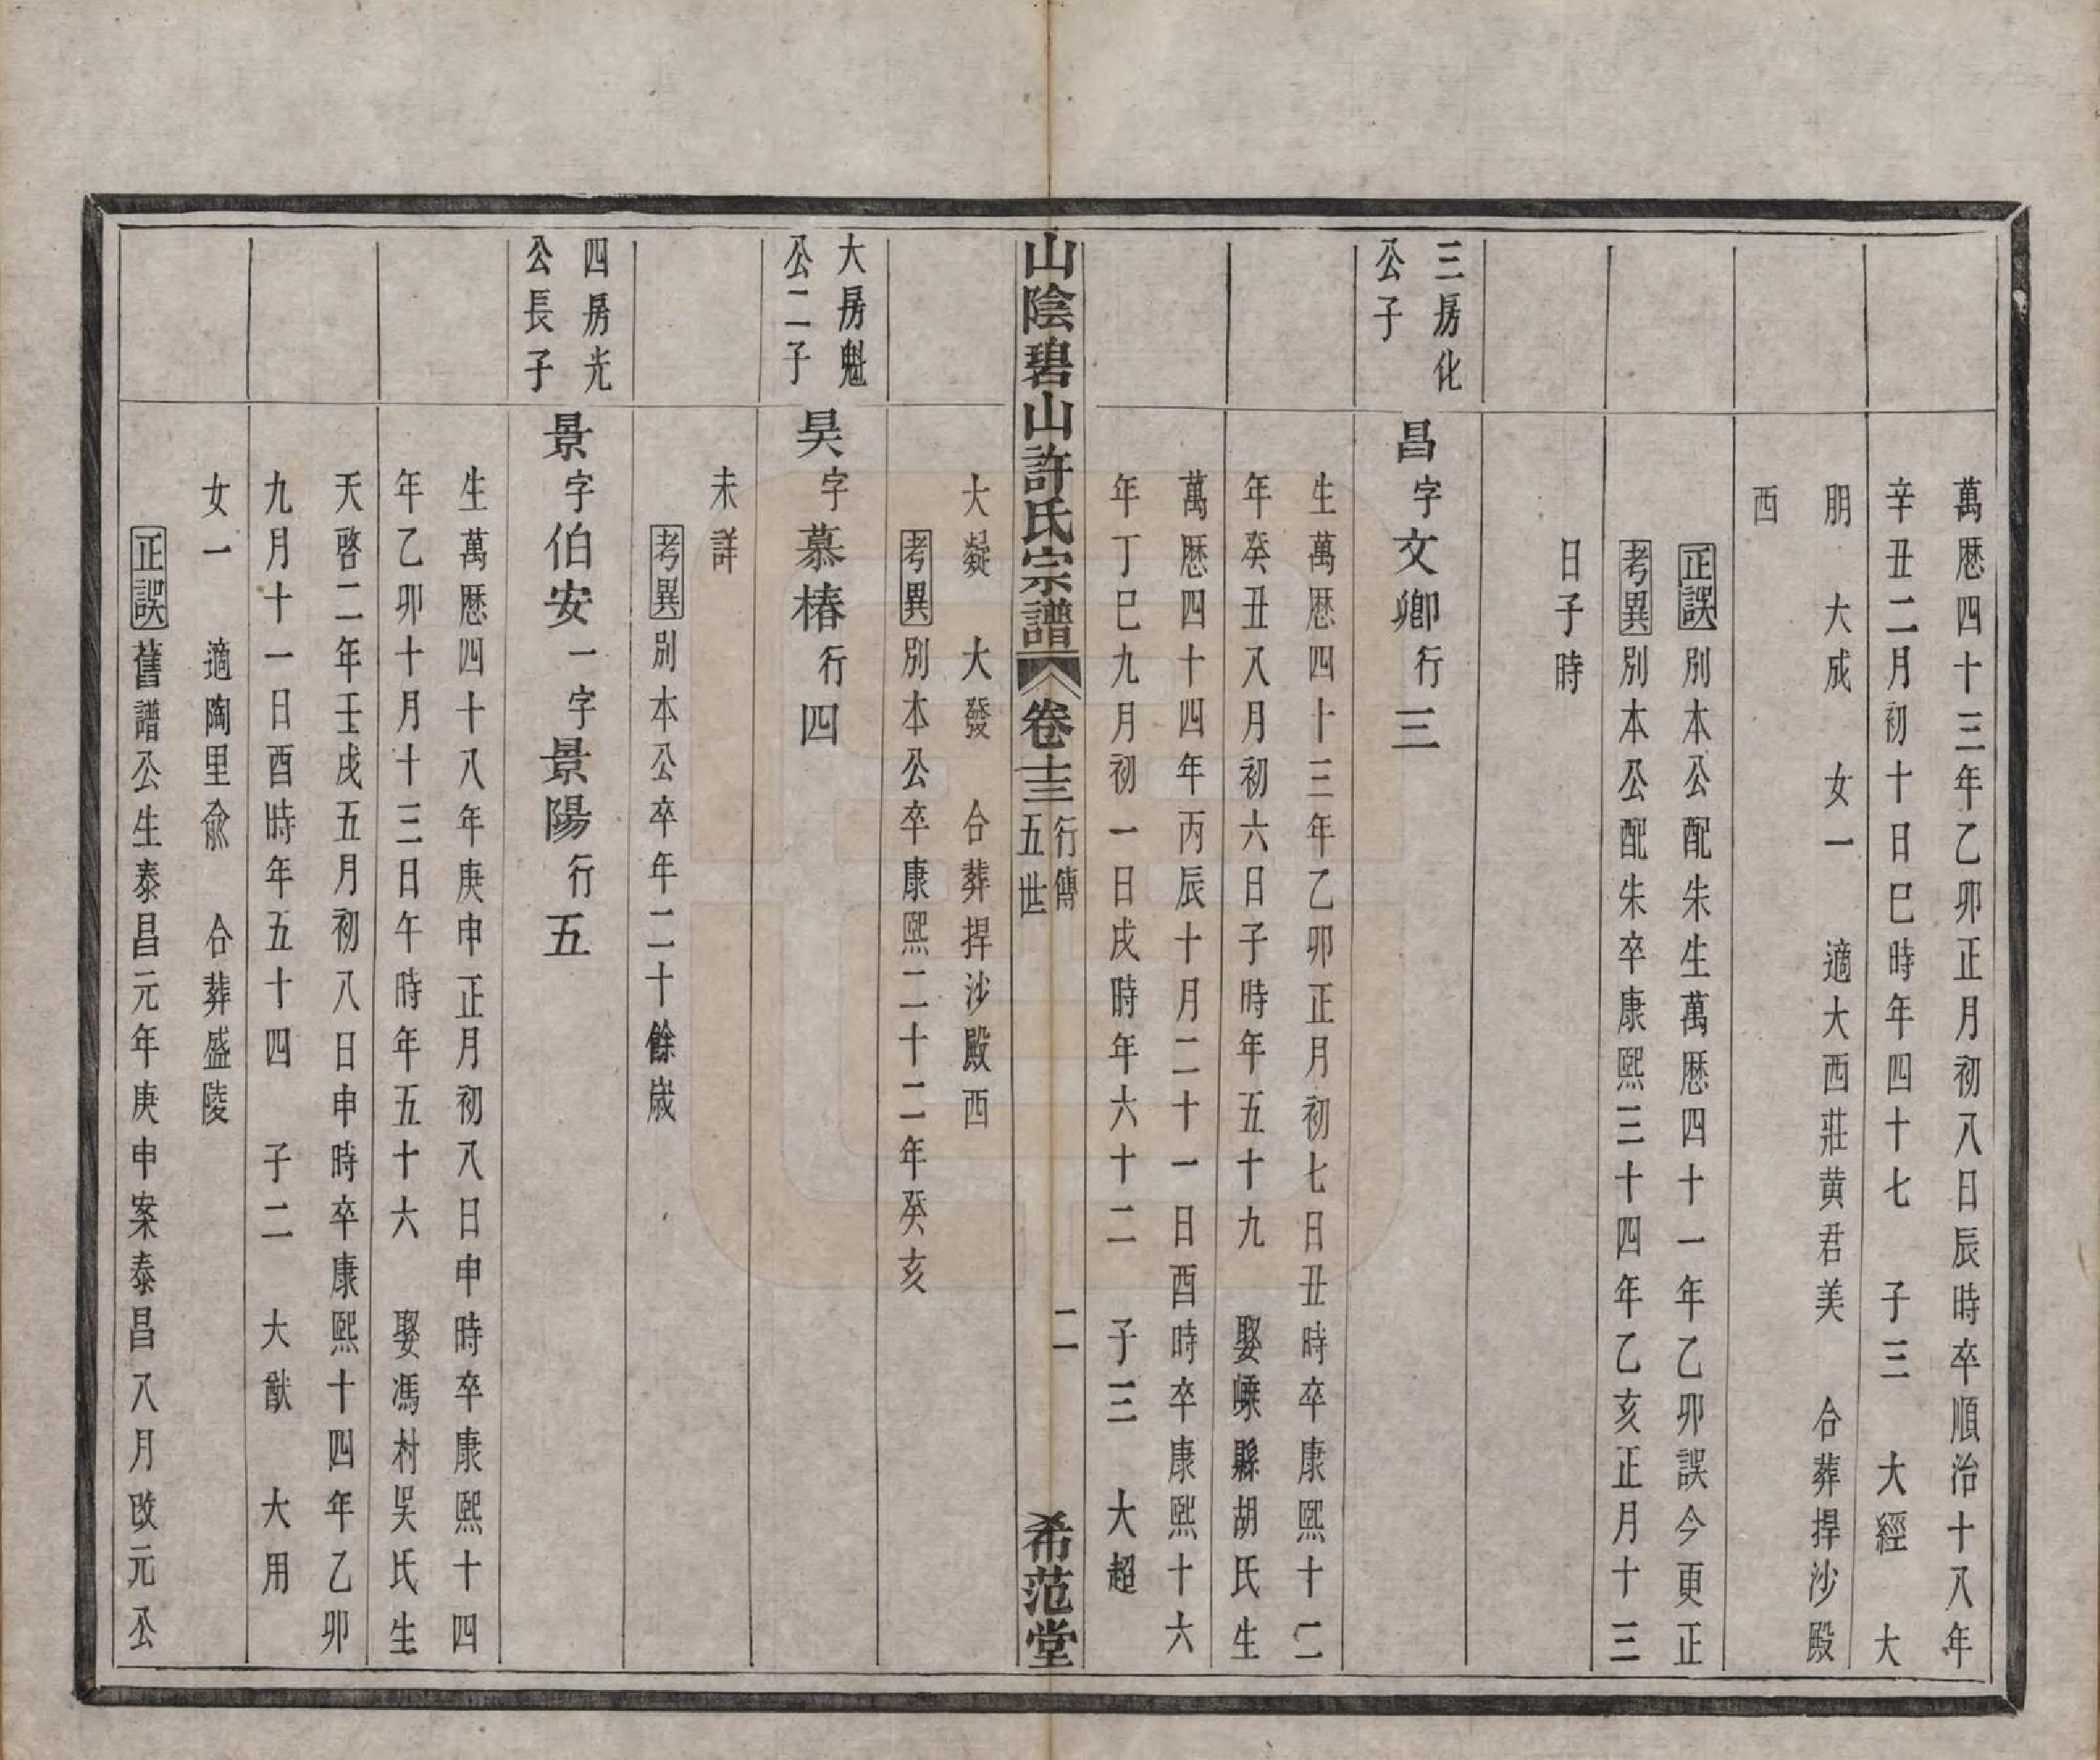 萬厯四十三年乙卯正月初八日辰時卒順治十八年
辛丑二月初十日巳時年四十七　子三　大經　大
朋　大成　女一　適大西莊黄君美　合葬捍沙殿
西
正誤別本公配朱生萬厯四十一年乙卯誤今更正
考異別本公配朱卒康熙三十四年乙亥正月十三
日子時
三房化
公子
昌字文卿行三
生萬厯四十三年乙卯正月初七日丑時卒康熙十二
年癸丑八月初六日子時年五十九　娶嵊縣胡氏生
萬厯四十四年丙辰十月二十一日酉時卒康熙十六
年丁巳九月初一日戌時年六十二　子三　大超
山陰碧山許氏宗譜　卷十三　行傳　五世　二　希范堂
大凝　大發　合葬捍沙殿西
考異別本公卒康熙二十二年癸亥
大房魁
公二子
昊字慕椿行四
未詳
考異別本公卒年二十餘嵗
四房光
公長子
景字伯安一字景陽行五
生萬厯四十八年庚申正月初八日申時卒康熙十四
年乙卯十月十三日午時年五十六　娶馮村吴氏生
天啓二年壬戌五月初八日申時卒康熙十四年乙卯
九月十一日酉時年五十四　子二　大猷　大用
女一　適陶里俞　合葬盛陵
正誤舊譜公生泰昌元年庚申案泰昌八月改元公